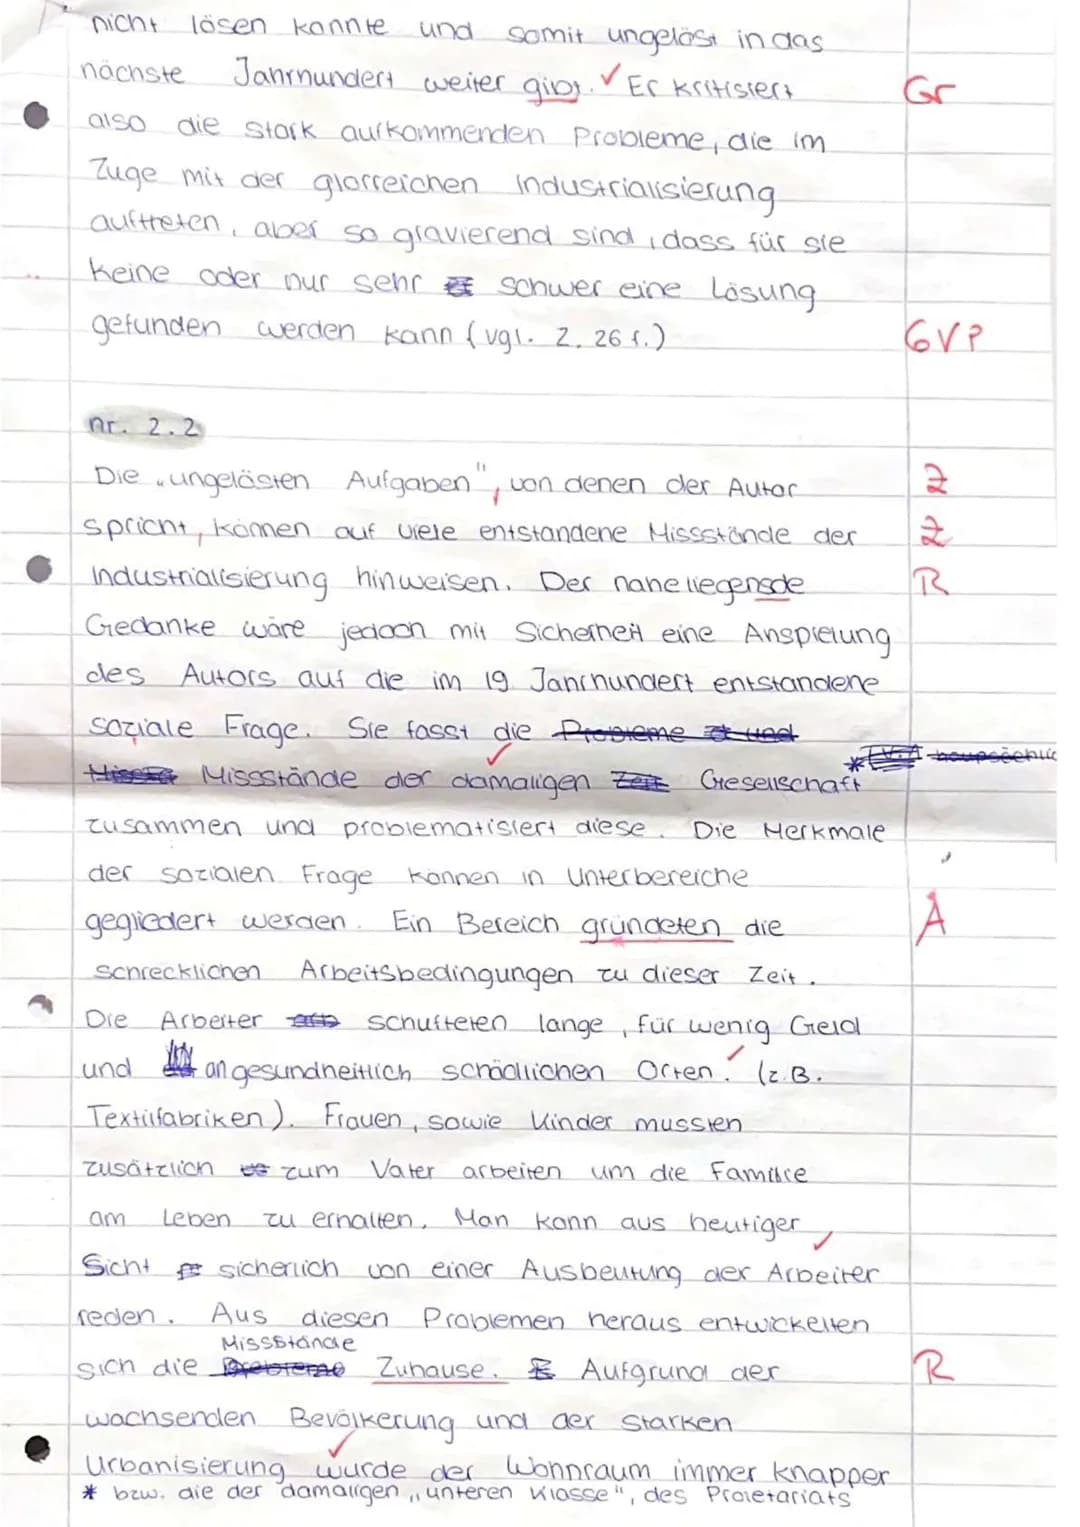 nicht lösen konnte und somit ungelöst in das
nächste Jahrhundert weiter gibt. ✓ Er kritisiert Gr
also die stark aufkommenden Probleme, die im
Zuge mit der glorreichen Industrialisierung
auftreten, aber so gravierend sind, dass für sie
keine oder nur sehr schwer eine Lösung
gefunden werden kann (vgl. Z. 26 f.) 6VP
nr. 2.2
Die „ungelösten Aufgaben", von denen der Autor Z
spricht, können auf viele entstandene Missstände der Z
Industrialisierung hinweisen. Der naheliegensde R
Gedanke wäre jedoch mit Sicherheit eine Anspielung
des Autors auf die im 19. Jahrhundert entstandene
soziale Frage. Sie fasst die Probleme und
✓ Missstände der damaligen Zeit Gesellschaft *
zusammen und problematisiert diese. Die Merkmale
der sozialen Frage können in Unterbereiche
gegliedert werden. Ein Bereich gründeten die A
schrecklichen Arbeitsbedingungen zu dieser Zeit.
Die Arbeiter schufteten lange, für wenig Geld
und an gesundheitlich schädlichen Orten. ✓ (z.B.
Textilfabriken). Frauen, sowie Kinder mussten
zusätzlich zum Vater arbeiten um die Familie
am Leben zu erhalten. Man kann aus heutiger ✓
Sicht sicherlich von einer Ausbeutung der Arbeiter
reden. Aus diesen Problemen heraus entwickelten
Missstände
sich die Probleme Zuhause. Aufgrund der R
wachsenden Bevölkerung und der starken
✓ Urbanisierung wurde der Wohnraum immer knapper
* bzw. die der damaligen „unteren Klasse", des Proletariats